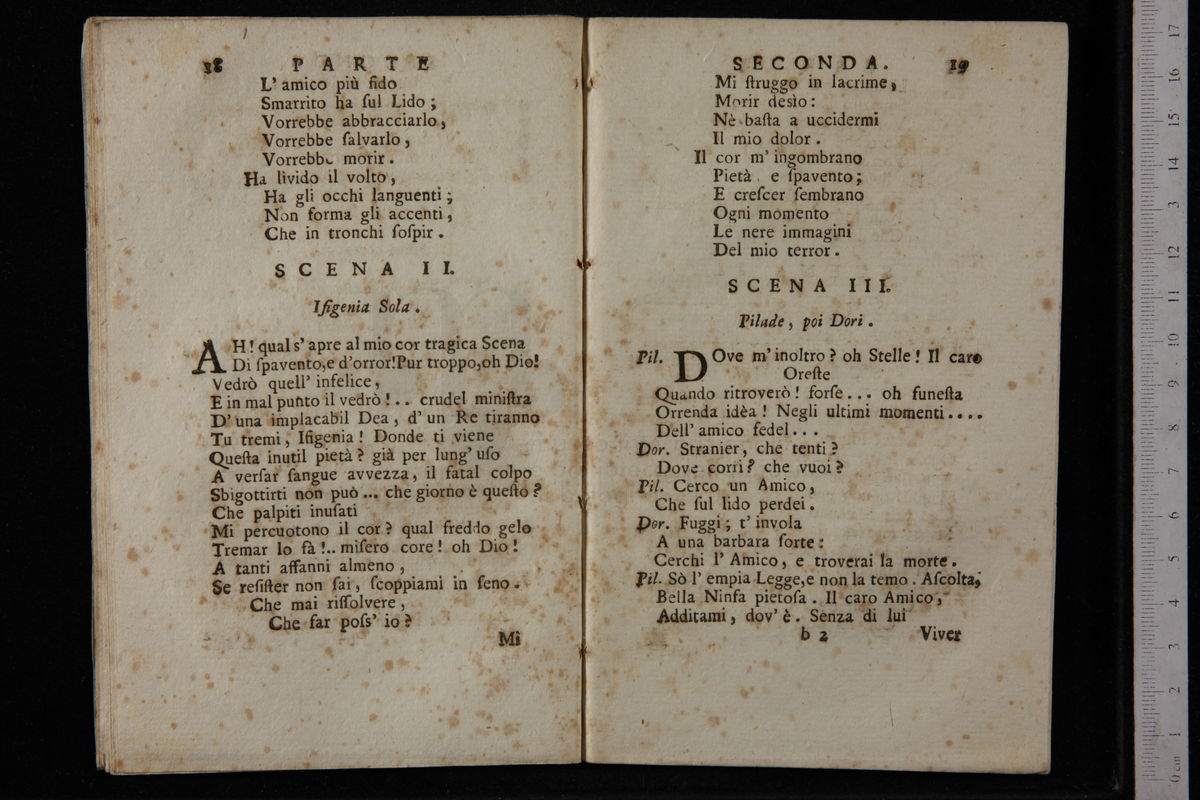 18 PARTE
L' amico più fido
Smarrito ha ſul Lido ;
Vorrebbe abbracciarlo,
Vorrebbe ſalvarlo ,
Vorrebbe morir .
Ha livido il volto ,
Ha gli occhi languenti ;
Non forma gli accenti ,
Che in tronchi ſoſpir .
SCENA II.
Ifigenia Sola .
AH! qual s' apre al mio cor tragica Scena
Di ſpavento,e d'orror!Pur troppo,oh Dio!
Vedrò quell' infelice ,
E in mal punto il vedrò ! .. crudel miniſtra
D' una implacabil Dea , d' un Re tiranno
Tu tremi , Ifigenia ! Donde ti viene
Queſta inutil pietà ? già per lung' uſo
A verſar ſangue avvezza , il fatal colpo
Sbigottirti non può ... che giorno è queſto ?
Che palpiti inuſati
Mi percuotono il cor ? qual freddo gelo
Tremar lo fà !.. miſero core ! oh Dio !
A tanti affanni almeno ,
Se reſiſter non ſai , ſcoppiami in ſeno .
Che mai riſſolvere ,
Che far poſs' io ?
Mi
SECONDA. 19
Mi ſtruggo in lacrime ,
Morir desìo :
Nè baſta a uccidermi
Il mio dolor .
Il cor m' ingombrano
Pietà e ſpavento ;
E creſcer ſembrano
Ogni momento
Le nere immagini
Del mio terror .
SCENA III.
Pilade , poi Dori .
Pil. DOve m' inoltro ? oh Stelle ! Il caro
Oreſte
Quando ritroverò ! forſe ... oh funeſta
Orrenda idèa ! Negli ultimi momenti ....
Dell' amico fedel ...
Dor. Stranier, che tenti ?
Dove corri ? che vuoi ?
Pil. Cerco un Amico ,
Che ſul lido perdei .
Dor. Fuggi ; t' invola
A una barbara ſorte :
Cerchi l' Amico , e troverai la morte .
Pil. Sò l' empia Legge,e non la temo . Aſcolta,
Bella Ninfa pietoſa . Il caro Amico ,
Additami , dov' è . Senza di lui
b 2 Viver